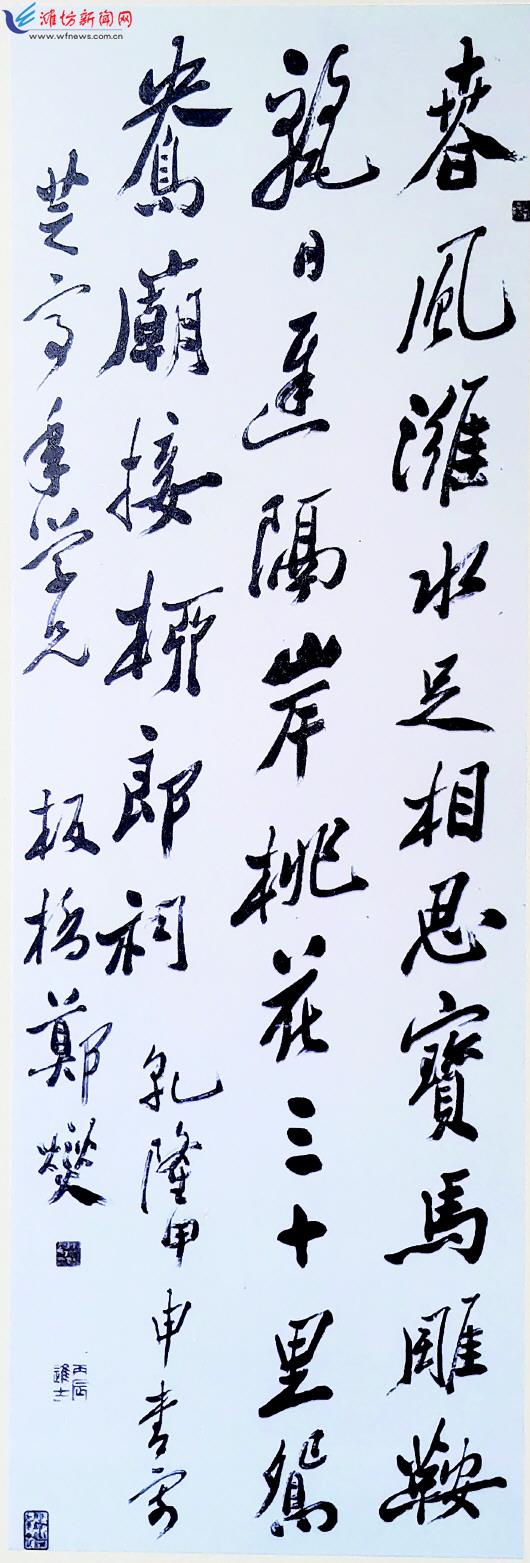 潍坊新闻网
www.wfnews.com.cn
春風濰水足相思寶馬雕鞍
日遲隔岸桃花三十里鴛
鴦廟接柳郎祠 乾隆甲申書寄
芸亭年學兄 板橋鄭燮
丙辰進士